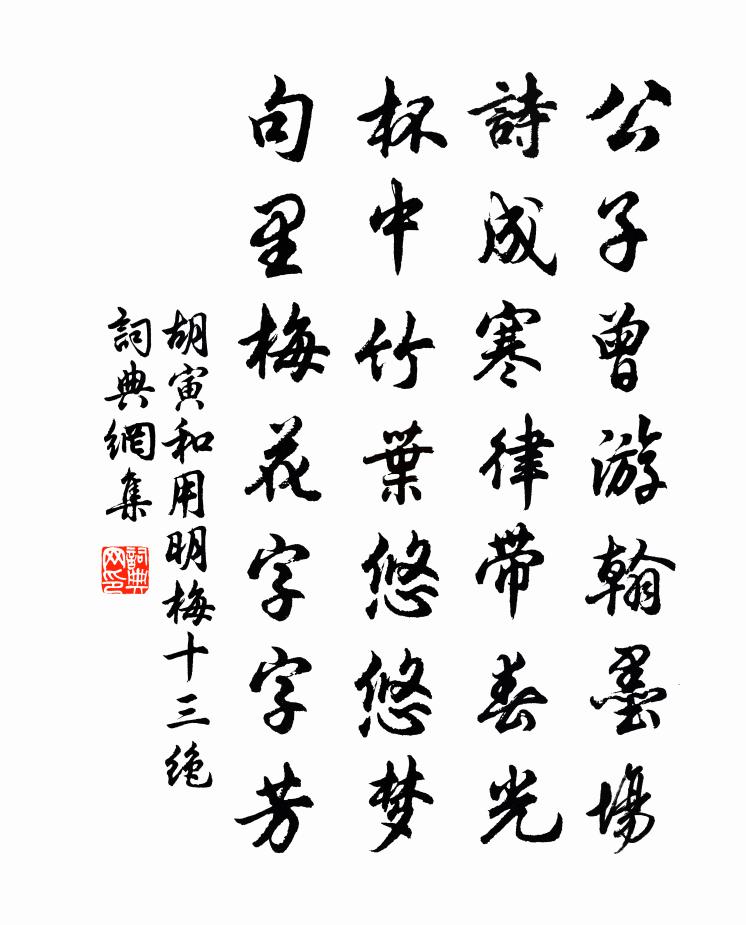 公子曾游翰墨場
詩成寒律帶春光
杯中竹葉悠悠梦
句里梅花字字芳
胡寅和用明梅十三绝
詞典網集
詞典网印